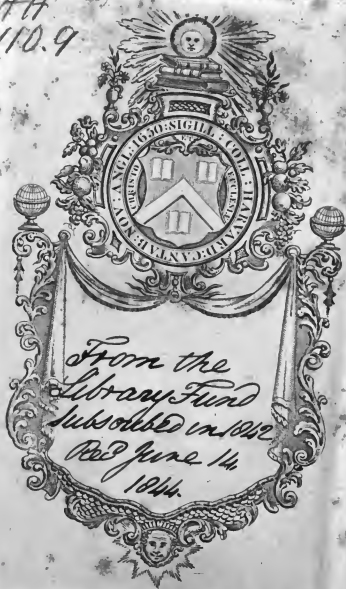 110.9
SIGILL: COLL: HARVARD: CANTAB: NOV: ANGL: 1650:
CHRISTO ET ECCLESIÆ
From the
Library Fund
subscribed in 1842
Rec'd June 14,
1844.